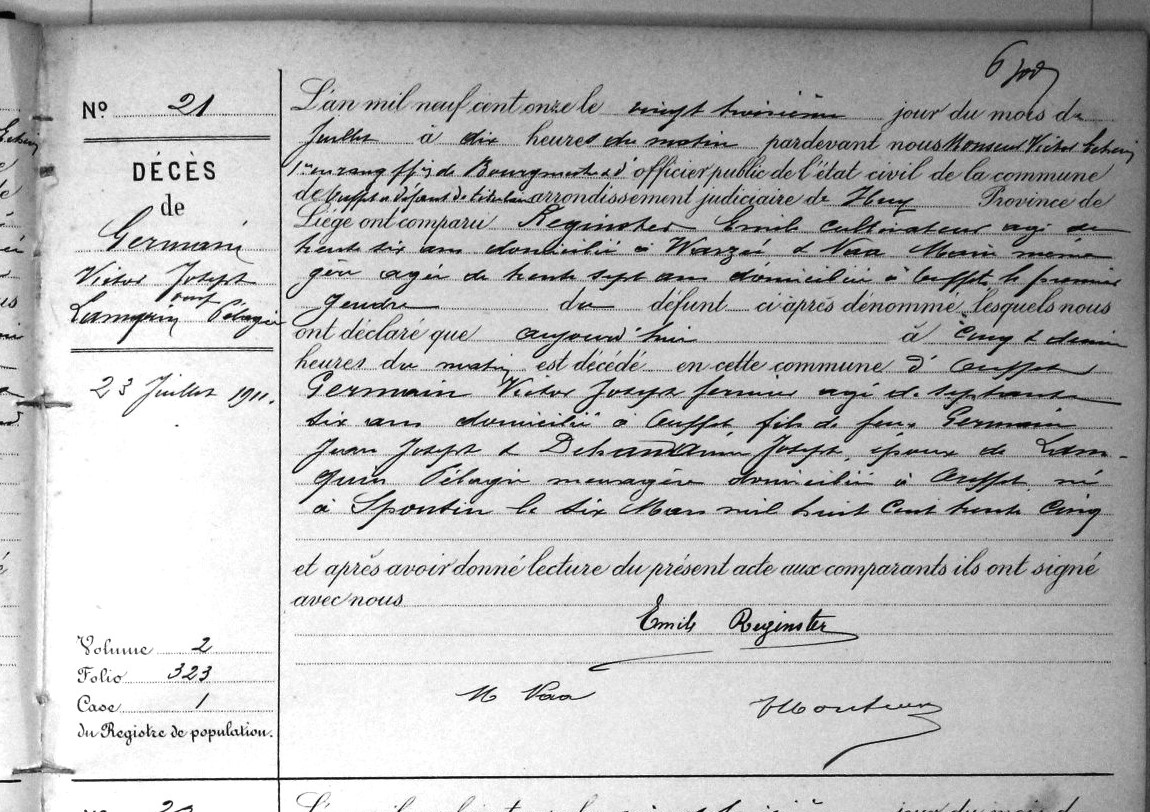 No 21
DÉCÈS
de
Germain
Victor Joseph
Lamquin Pélagie
23 Juillet 1911.
Volume 2
Folio 323
Case 1
du Registre de population.
L'an mil neuf cent onze le vingt troisième jour du mois de
Juillet à dix heures du matin pardevant nous Monsieur Victor
officier public de l'état civil de la commune
de Ouffet à défaut de titulaire arrondissement judiciaire de Huy Province de
Liége ont comparu Reginster Emile cultivateur agé de
trente six ans domicilié à Warzée & Naa Marie ména
gère agée de trente sept ans domiciliée à Ouffet, le premier
gendre du défunt ci-après dénommé, lesquels nous
ont déclaré que aujourd'hui à cinq & demie
heures du matin est décédé en cette commune d' Ouffet
Germain Victor Joseph fermier agé de septante
six ans domicilié à Ouffet fils de feus Germain
Jean Joseph & Joseph, époux de Lam-
quin Pélagie ménagère domiciliée à Ouffet, né
à Spontin le six Mars mil huit cent trente cinq
et après avoir donné lecture du présent acte aux comparants ils ont signé
avec nous
Emile Reginster
M Naa